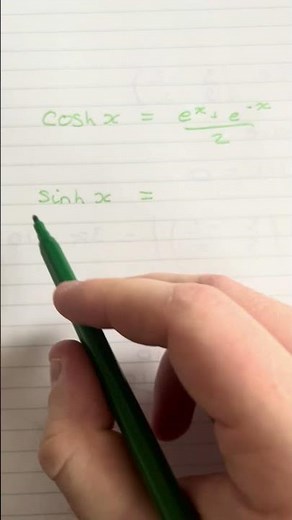 cosh x = (e^x + e^-x)/2
sinh x =